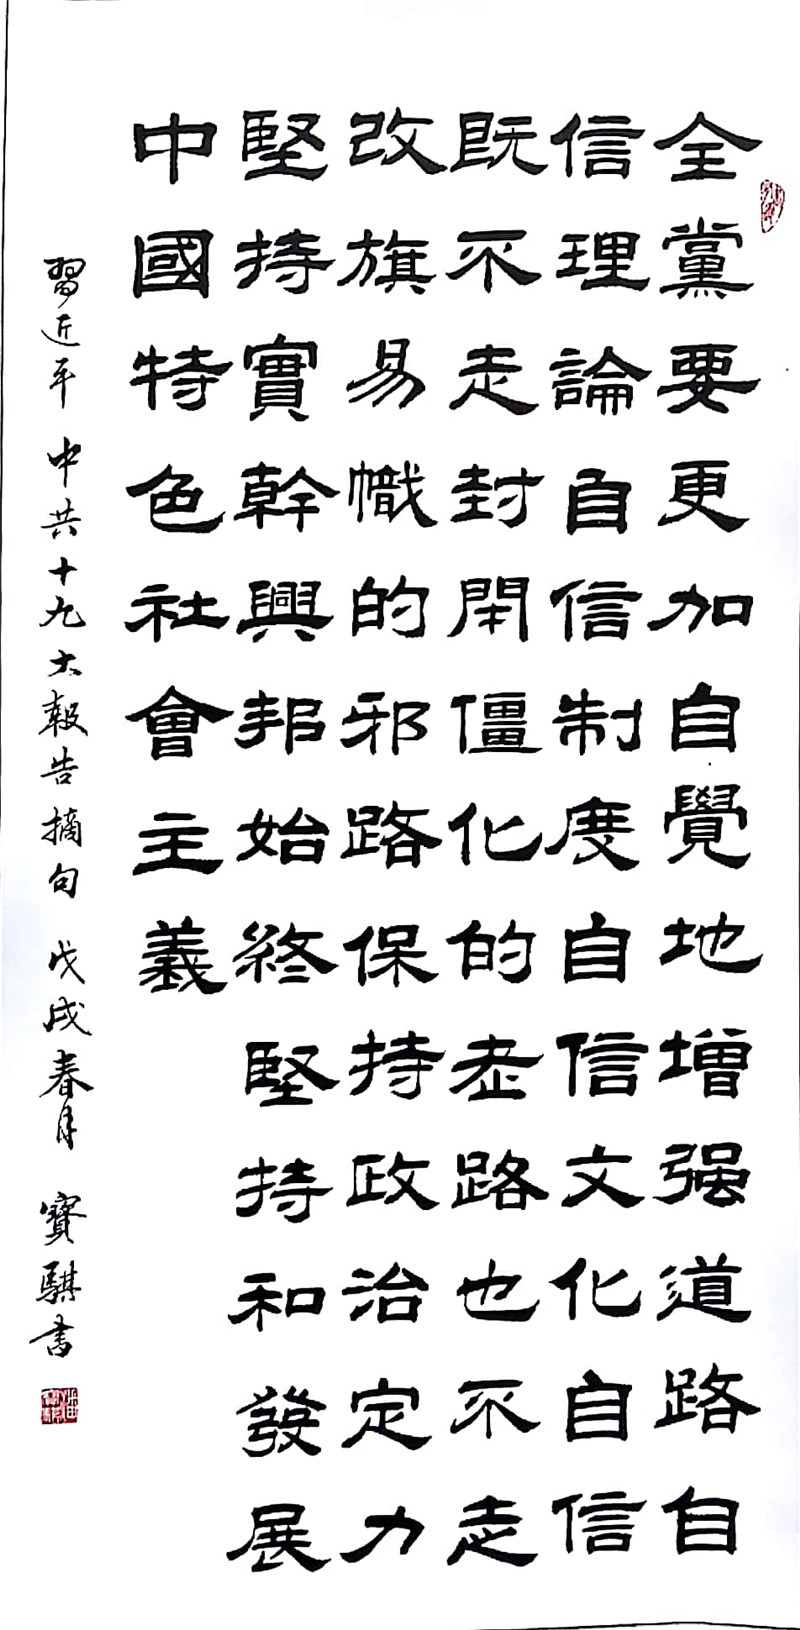 全黨要更加自覺地增强道路自
信理論自信制度自信文化自信
既不走封閉僵化的老路也不走
改旗易幟的邪路保持政治定力
堅持實幹興邦始終堅持和發展
中國特色社會主義
習近平 中共十九大報告摘句 戊戌春月 寶騏書